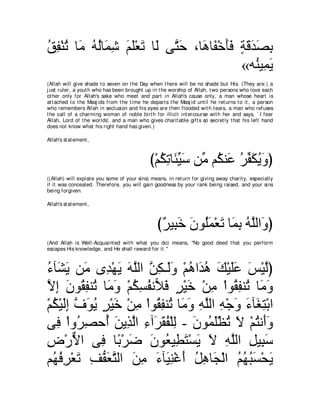 بِصَدَقَةٍ فَأَخْفَاهَا، حَتَّى لَا تَعْلَمَ شِمَالُهُ مَا تُنْفِقُ
يَمِينُهُ»
(Allah will give shade to seven on the Day when there will be no shade but His. (They are:) a
just ruler, a youth who has been brought up in the worship of Allah, two persons who love each
other only for Allah's sake who meet and part in Allah's cause only, a man whose heart is
attached to the Masjids from the time he departs the Masjid until he returns to it, a person
who remembers Allah in seclusion and his eyes are then flooded with tears, a man who refuses
the call of a charming woman of noble birth for illicit intercourse with her and says, `I fear
Allah, Lord of the worlds', and a man who gives charitable gifts so secretly that his left hand
does not know what his right hand has given.)
Allah's statement,
(وَيُكَفِّرُ عَنكُم مِّن سَيِّئَاتِكُمْ)
((Allah) will expiate you some of your sins) means, in return for giving away charity, especially
if it was concealed. Therefore, you will gain goodness by your rank being raised, and your sins
being forgiven.
Allah's statement,
(وَاللَّهُ بِمَا تَعْمَلُونَ خَبِيرٌ)
(And Allah is Well-Acquainted with what you do) means, "No good deed that you perform
escapes His knowledge, and He shall reward for it.''
(لَّيْسَ عَلَيْكَ هُدَاهُمْ وَلَـكِنَّ اللَّهَ يَهْدِى مَن يَشَآءُ
وَمَا تُنفِقُواْ مِنْ خَيْرٍ فَلاًّنفُسِكُمْ وَمَا تُنفِقُونَ إِلاَّ
ابْتِغَآءَ وَجْهِ اللَّهِ وَمَا تُنفِقُواْ مِنْ خَيْرٍ يُوَفَّ إِلَيْكُمْ
وَأَنتُمْ لاَ تُظْلَمُونَ - لِلْفُقَرَآءِ الَّذِينَ أُحصِرُواْ فِى
سَبِيلِ اللَّهِ لاَ يَسْتَطِيعُونَ ضَرْبًا فِى الاٌّرْضِ
يَحْسَبُهُمُ الْجَاهِلُ أَغْنِيَآءَ مِنَ التَّعَفُّفِ تَعْرِفُهُم